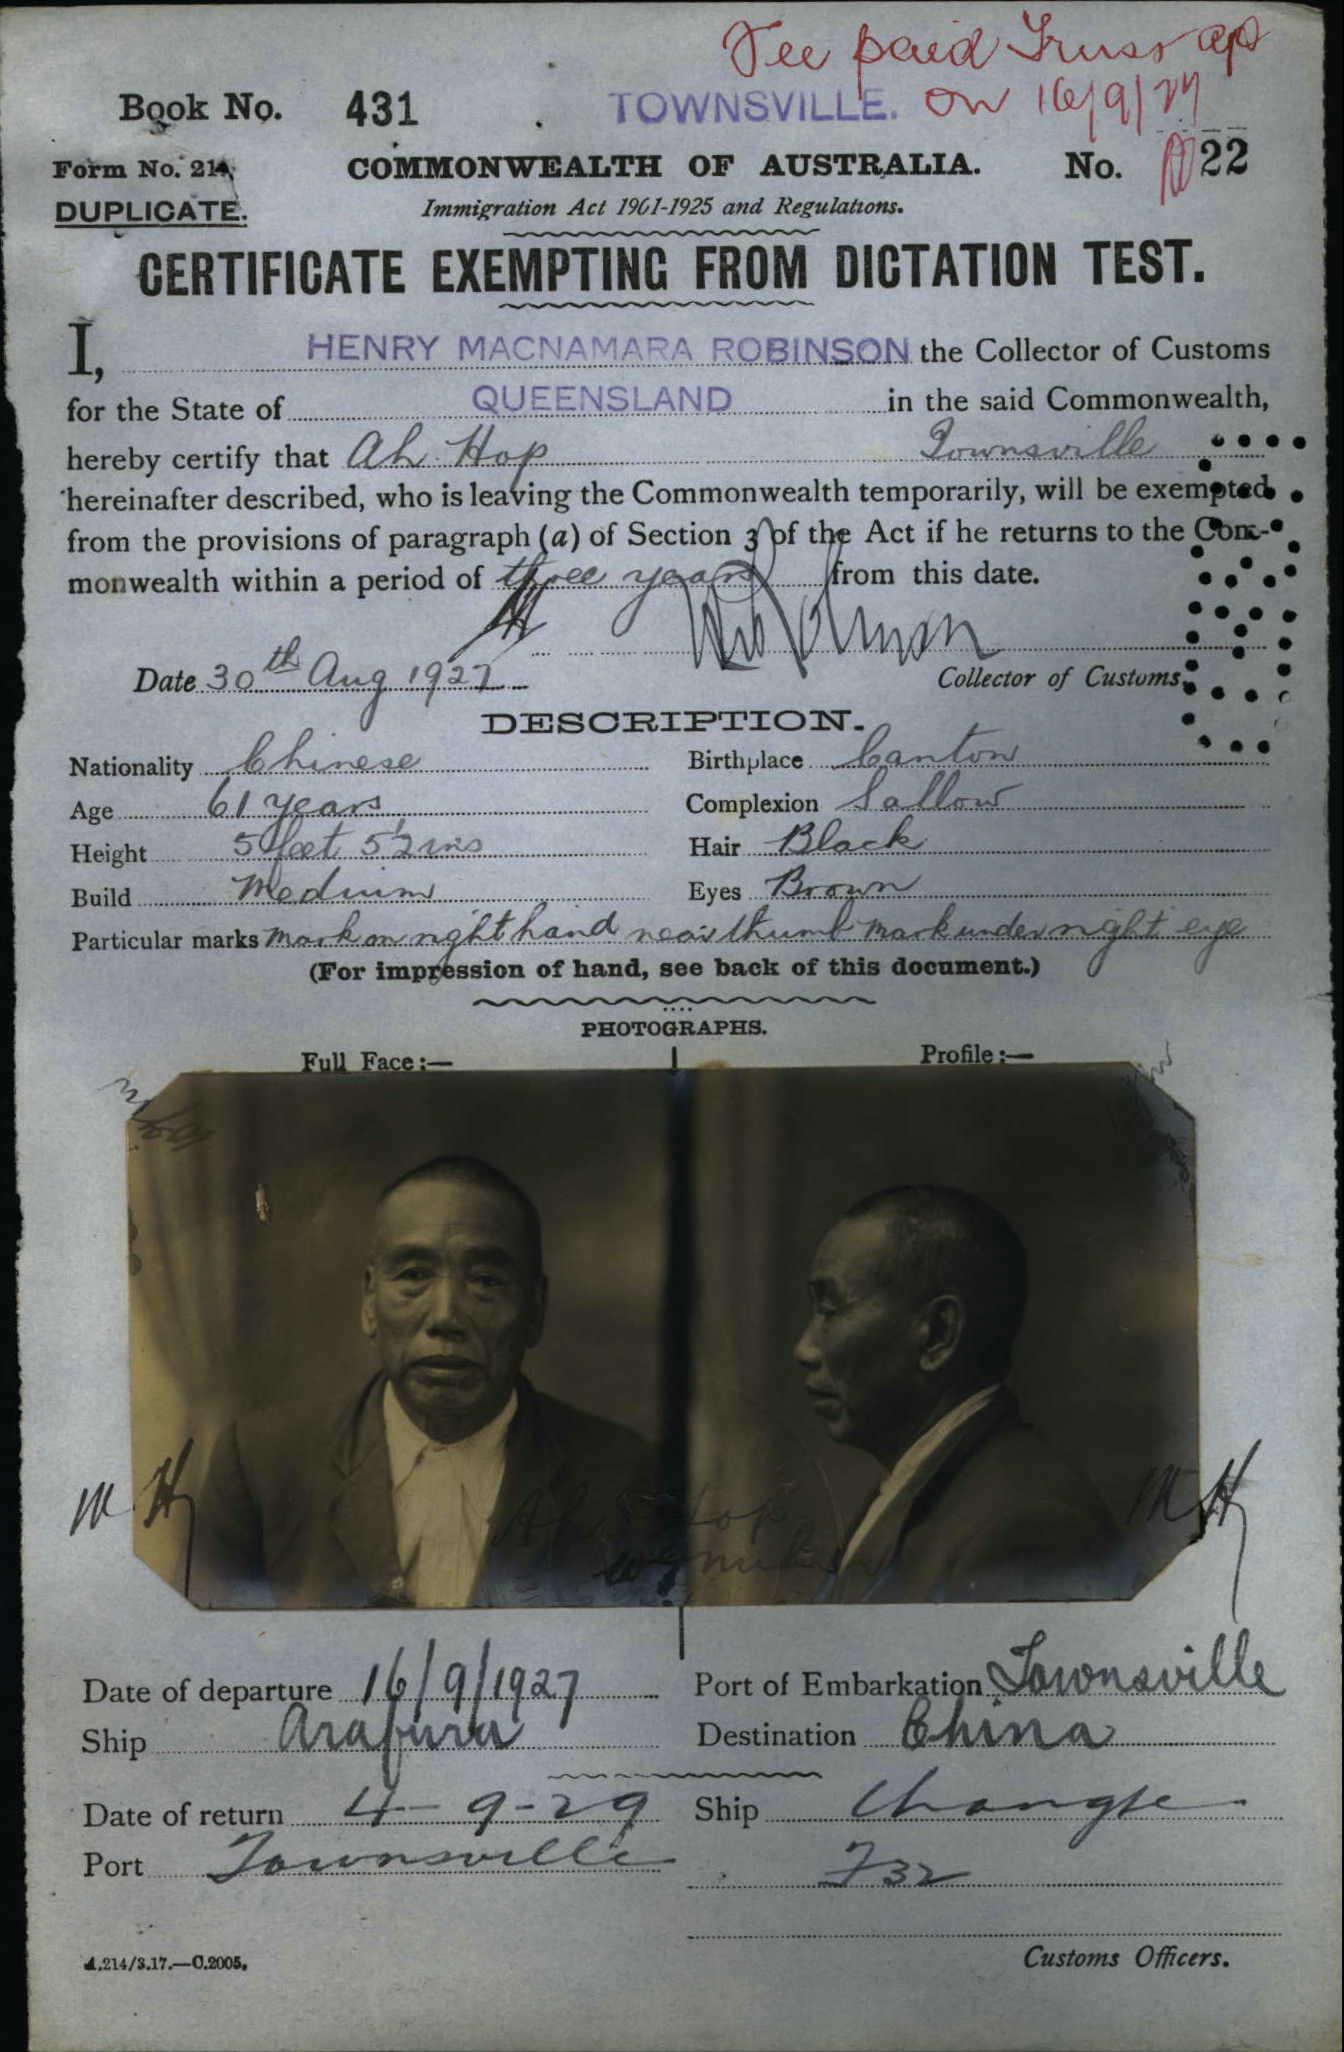 Fee paid Trust a/c
Book No. 431 TOWNSVILLE. on 16/9/27
Form No. 214. COMMONWEALTH OF AUSTRALIA. No. 22
DUPLICATE. Immigration Act 1901-1925 and Regulations.
CERTIFICATE EXEMPTING FROM DICTATION TEST.
I, HENRY MACNAMARA ROBINSON the Collector of Customs
for the State of QUEENSLAND in the said Commonwealth,
hereby certify that Ah Hop Townsville
hereinafter described, who is leaving the Commonwealth temporarily, will be exempted
from the provisions of paragraph (a) of Section 3 of the Act if he returns to the Com-
monwealth within a period of three years from this date.
Date 30th Aug 1927 Collector of Customs.
DESCRIPTION.
Nationality Chinese Birthplace Canton
Age 61 years Complexion Sallow
Height 5 feet 5½ ins Hair Black
Build Medium Eyes Brown
Particular marks Mark on right hand near thumb Mark under right eye
(For impression of hand, see back of this document.)
PHOTOGRAPHS.
Full Face:— Profile:—
Ah Hop
Date of departure 16/9/1927 Port of Embarkation Townsville
Ship Arafura Destination China
Date of return 4-9-29 Ship Changte
Port Townsville 732
A.214/3.17.—C.2005. Customs Officers.